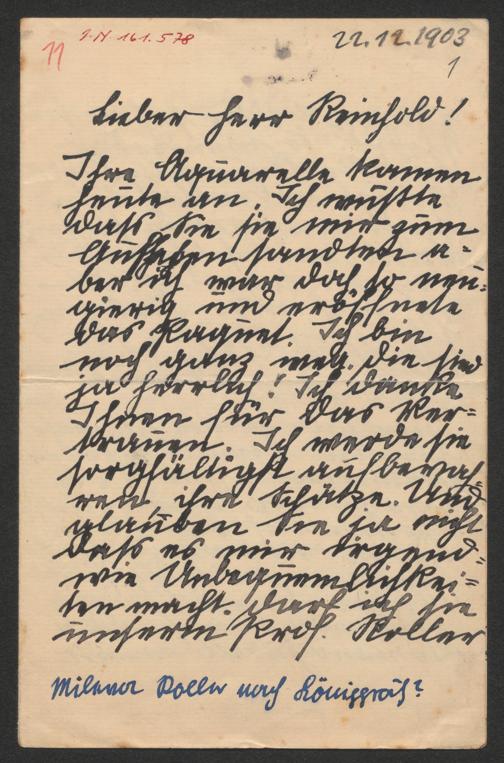 11 I.N. 161.578 22.12.1903
1
Lieber Herr Reinhold!
Ihre Aquarelle kamen
heute an. Ich wußte
dass Sie sie mir zum
Aufheben sandten a-
ber ich war doch so neu-
gierig und eröffnete
das Paquet. Ich bin
noch ganz weg. die sind
ja herrlich! Ich danke
Ihnen für das Ver-
trauen. Ich werde sie
sorgfältigst aufbewah-
ren, ihre Schätze. Und
glauben Sie ja nicht
dass es mir irgend-
wie Unbequemlichkei-
ten macht. Darf ich sie
unserm Prof. Roller
Milena Roller nach Königgrätz?